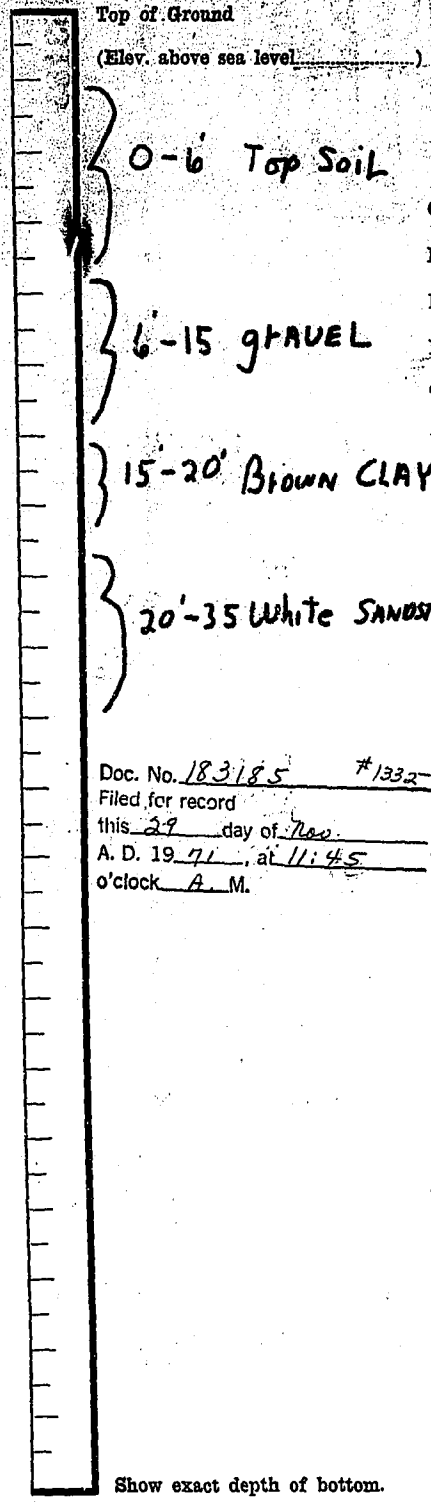 Top of Ground
(Elev. above sea level....................)
0-6' Top SoiL
6'-15 grAVEL
15'-20' Brown CLAY
20'-35 White SANDST
Doc. No. 183185 #1332
Filed for record
this 29 day of Nov.
A. D. 19 71, at 11:45
o'clock A. M.
Show exact depth of bottom.